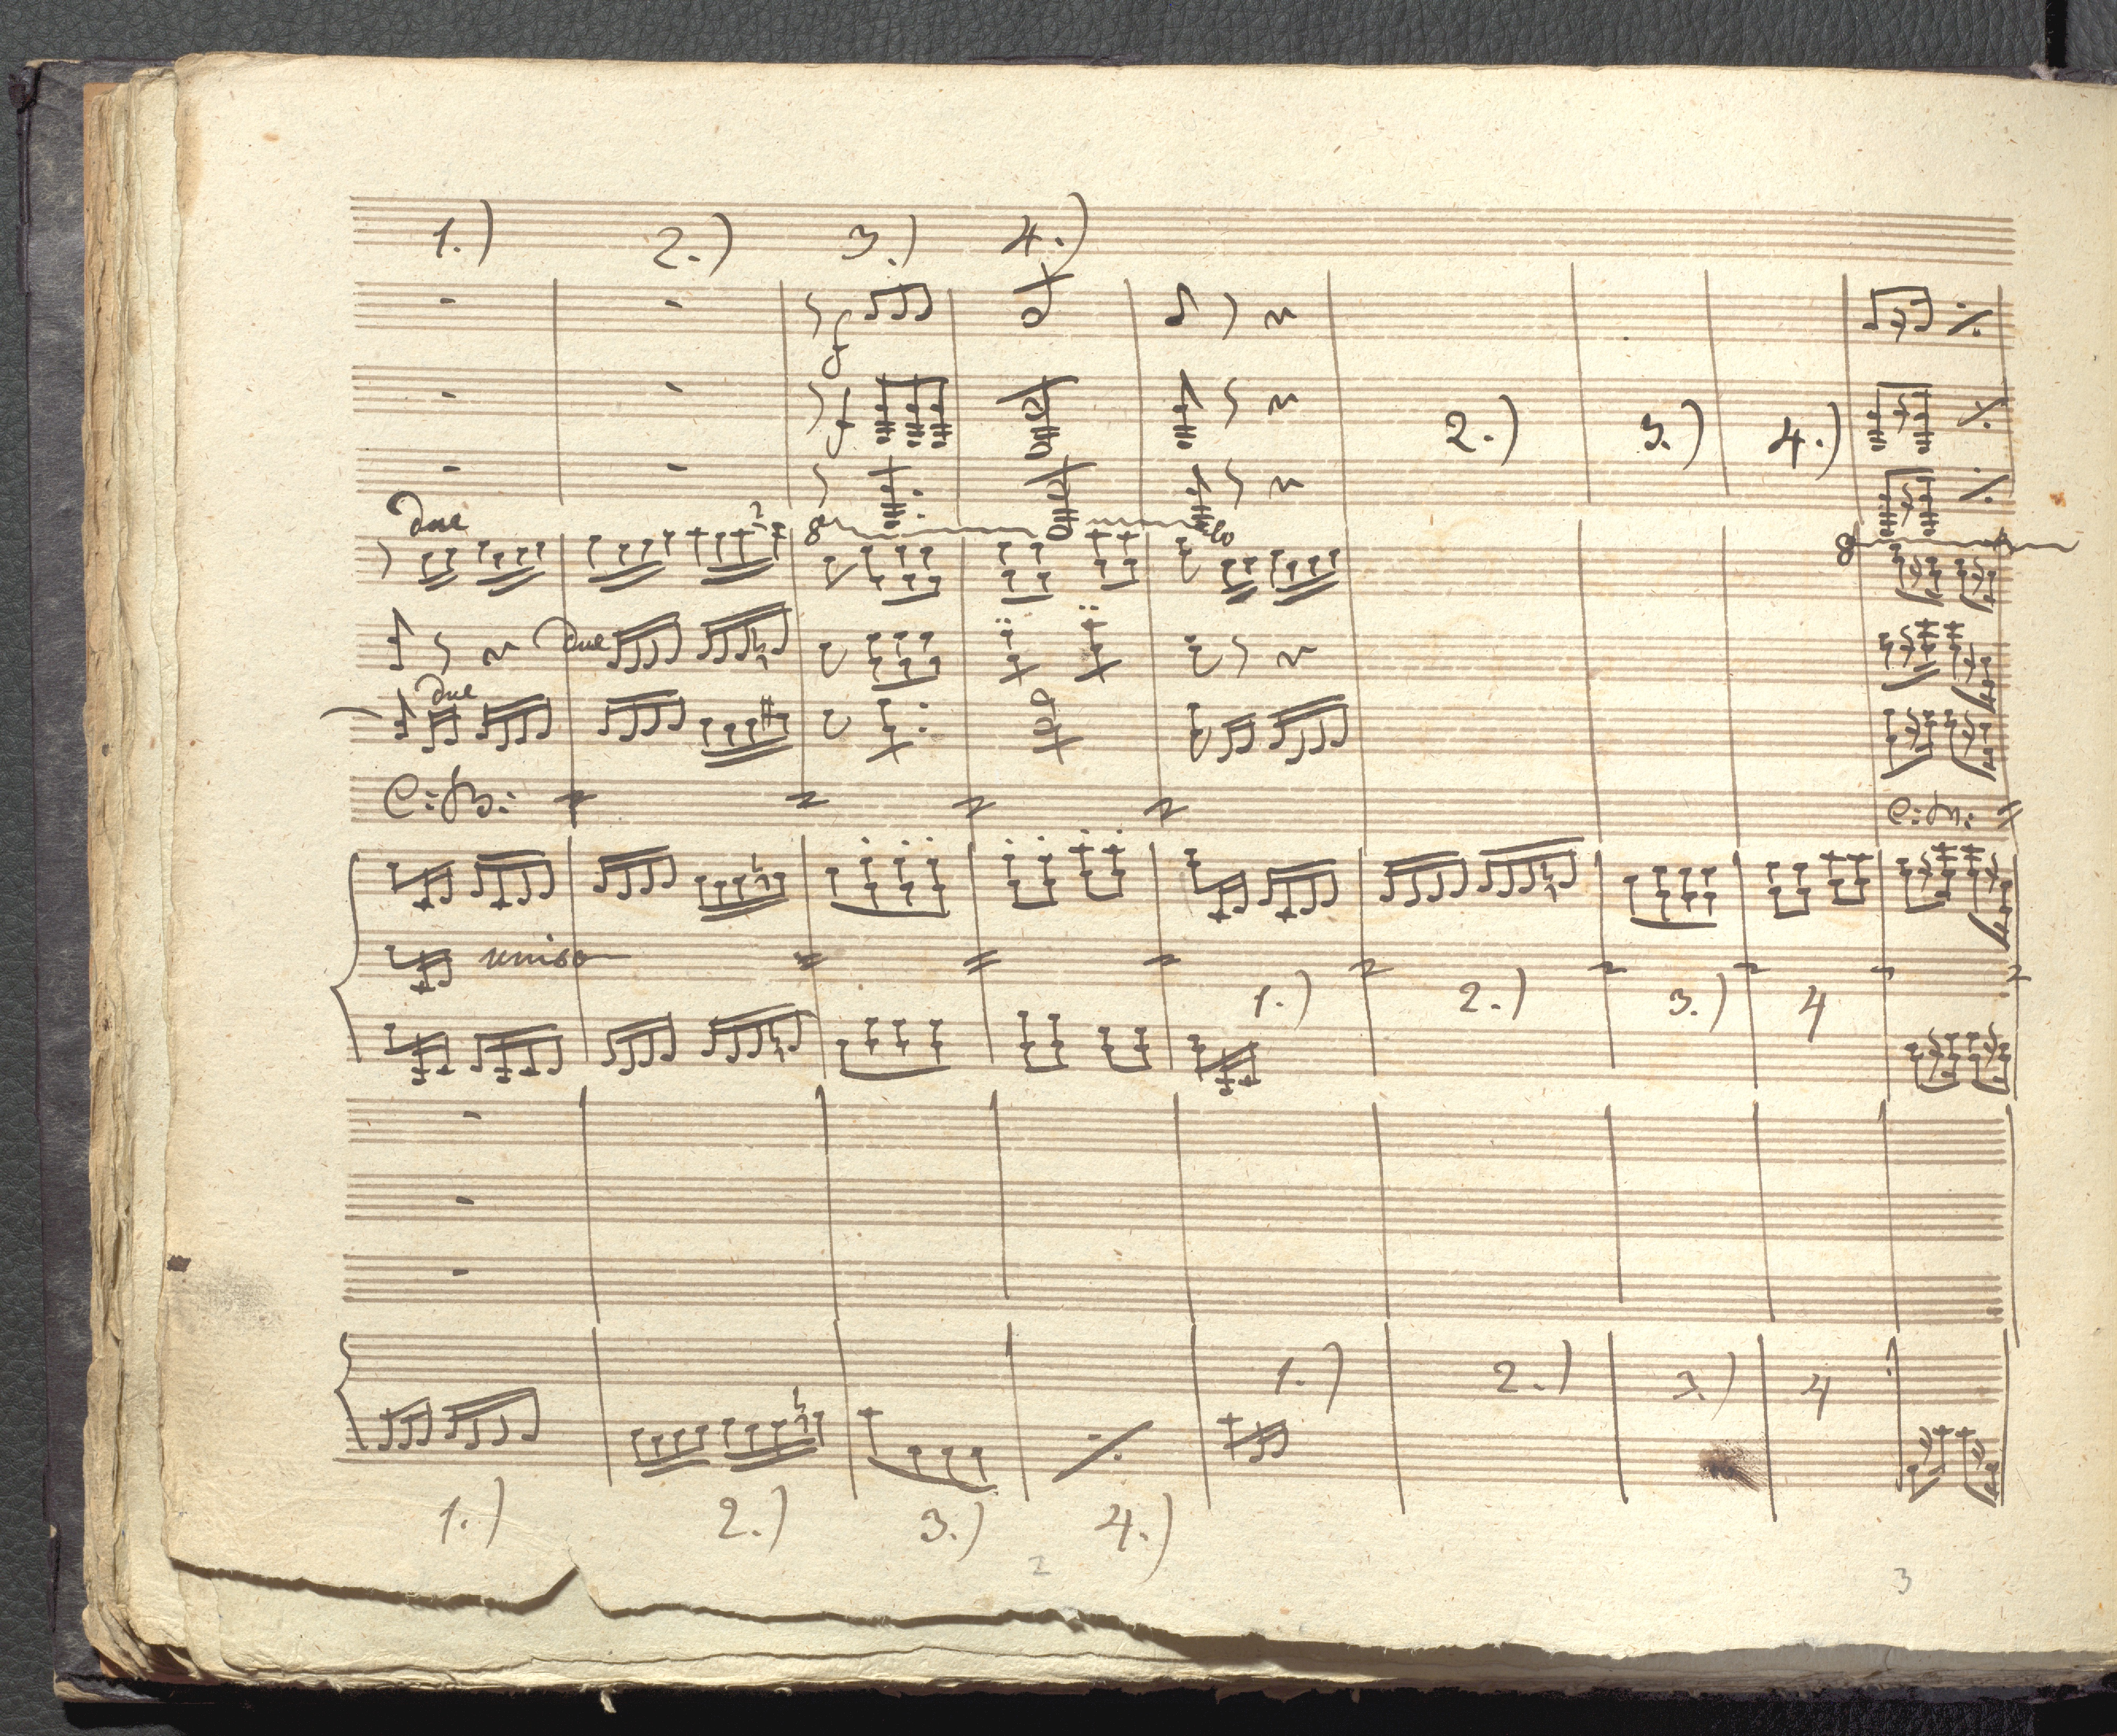 1.) 2.) 3.) 4.)
f
f 2.) 3.) 4.)
due 8 8
due
due
C: B:
unison
1.) 2.) 3.) 4
1.) 2.) 3.) 4
1.) 2.) 3.) 4.)
2 3